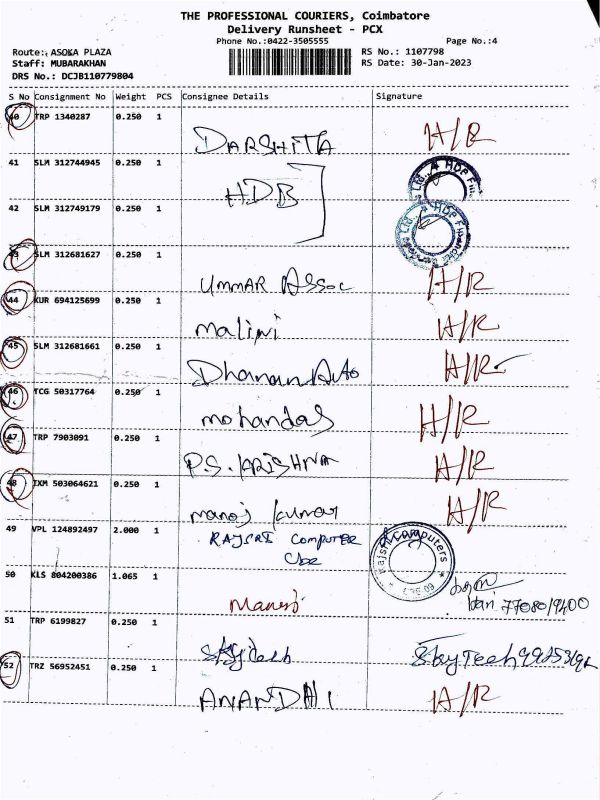 THE PROFESSIONAL COURIERS, Coimbatore
Delivery Runsheet - PCX
Phone No.:0422-3505555 Page No.:4
Route: ASOKA PLAZA RS No.: 1107798
Staff: MUBARAKHAN RS Date: 30-Jan-2023
DRS No.: DCJB110779804
S No Consignment No Weight PCS Consignee Details Signature
40 TRP 1340287 0.250 1
DARSHITA H/R
41 SLM 312744945 0.250 1
HDB
42 SLM 312749179 0.250 1
43 SLM 312681627 0.250 1
UMMAR ASSoc H/R
44 KUR 694125699 0.250 1
malini H/R
45 SLM 312681661 0.250 1
Dhanam Auto H/R
46 TCG 50317764 0.250 1
mohandas H/R
47 TRP 7903091 0.250 1
P.S. KRISHNA H/R
48 IXM 503064621 0.250 1
manoj kumar H/R
49 VPL 124892497 2.000 1
RAJSRI Computer
Cbe
Rajshri Computers
50 KLS 804200386 1.065 1
Manoj
51 TRP 6199827 0.250 1
Skytech SkyTech
52 TRZ 56952451 0.250 1
H/R